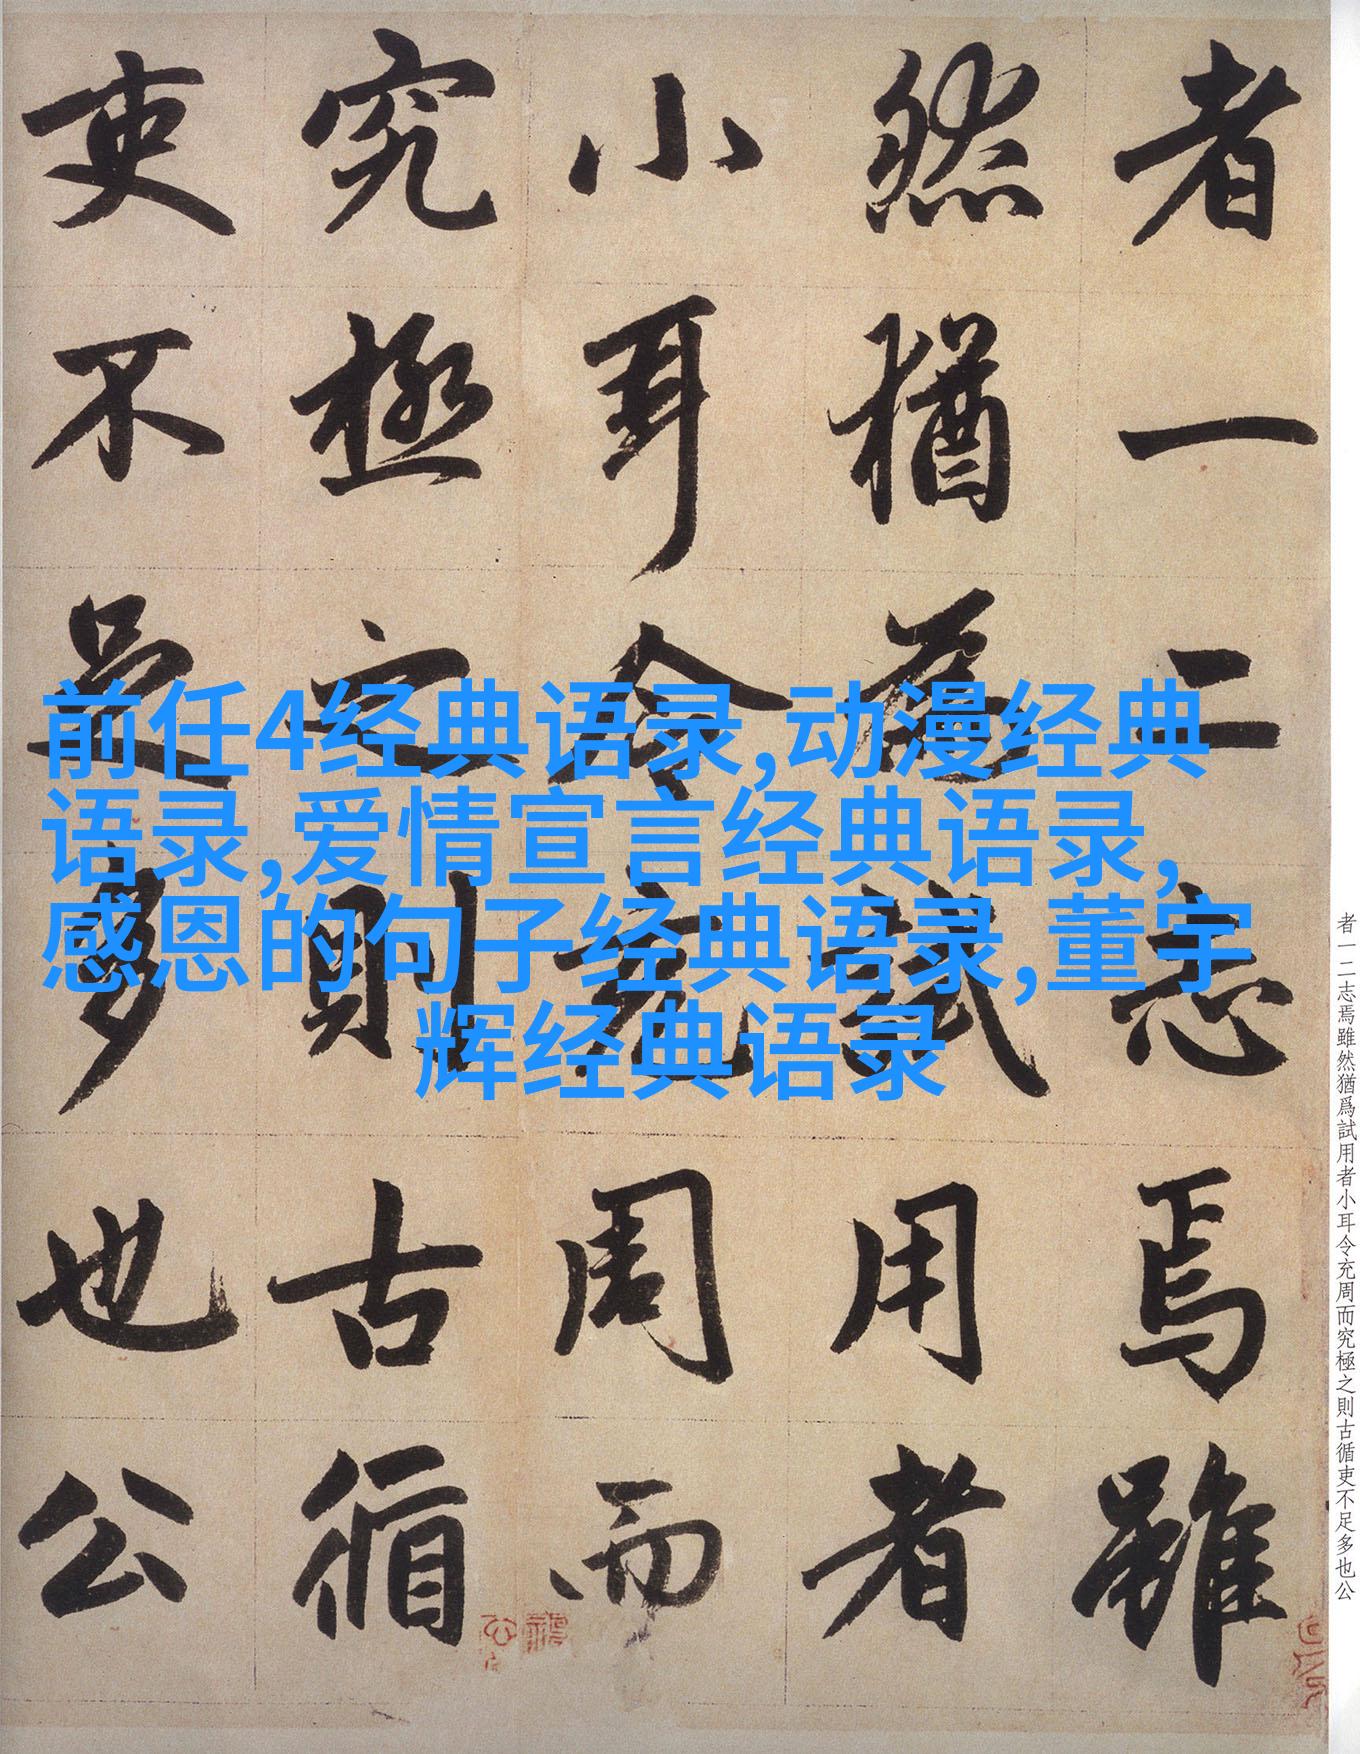 者一二志焉雖
然猶為試用者
小耳令充周而
究極之則古循
吏不足多也公
前任4经典语录,动漫经典
语录,爱情宣言经典语录,
感恩的句子经典语录,董宇
辉经典语录
者一二志焉雖然猶爲試用者小耳令充周而究極之則古循吏不足多也公